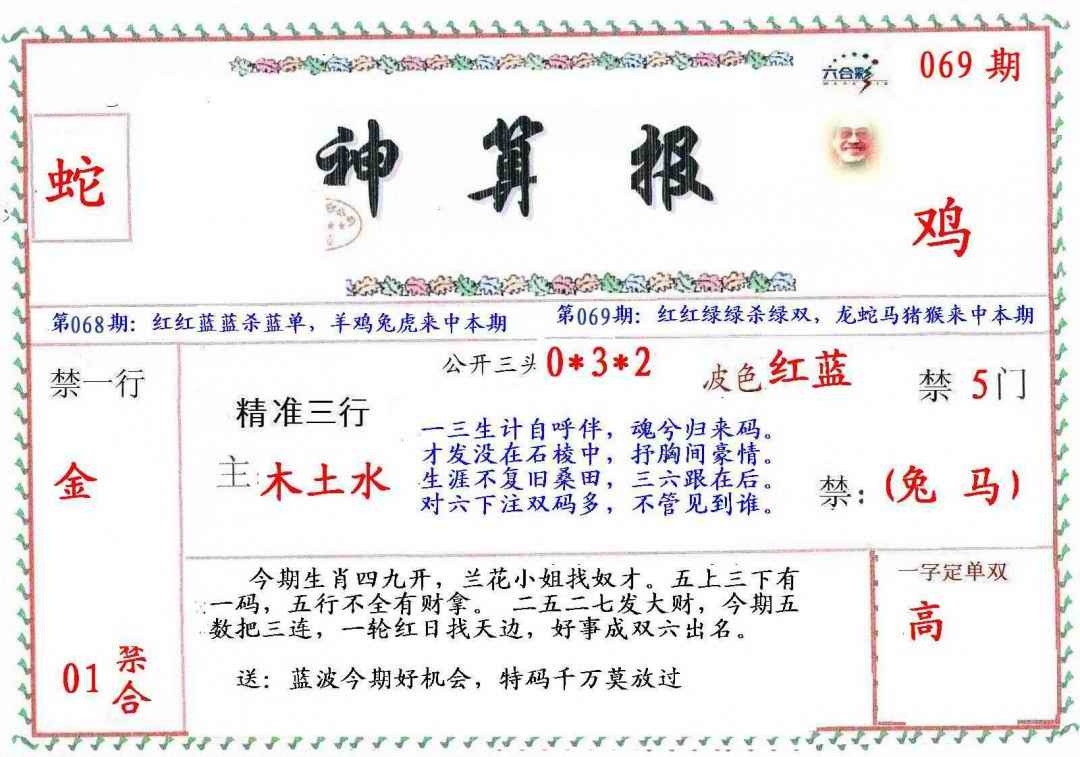 069 期
六合彩
神算报
蛇
鸡
第068期：红红蓝蓝杀蓝单，羊鸡兔虎来中本期
第069期：红红绿绿杀绿双，龙蛇马猪猴来中本期
禁一行
金
01 禁合
公开三头 0*3*2
波色 红蓝
禁 5 门
精准三行
主：木土水
一三生计自呼伴，魂兮归来码。
才发没在石棱中，抒胸间豪情。
生涯不复旧桑田，三六跟在后。
对六下注双码多，不管见到谁。
禁：(兔 马)
今期生肖四九开，兰花小姐找奴才。五上三下有
一码，五行不全有财拿。 二五二七发大财，今期五
数把三连，一轮红日找天边，好事成双六出名。
送：蓝波今期好机会，特码千万莫放过
一字定单双
高